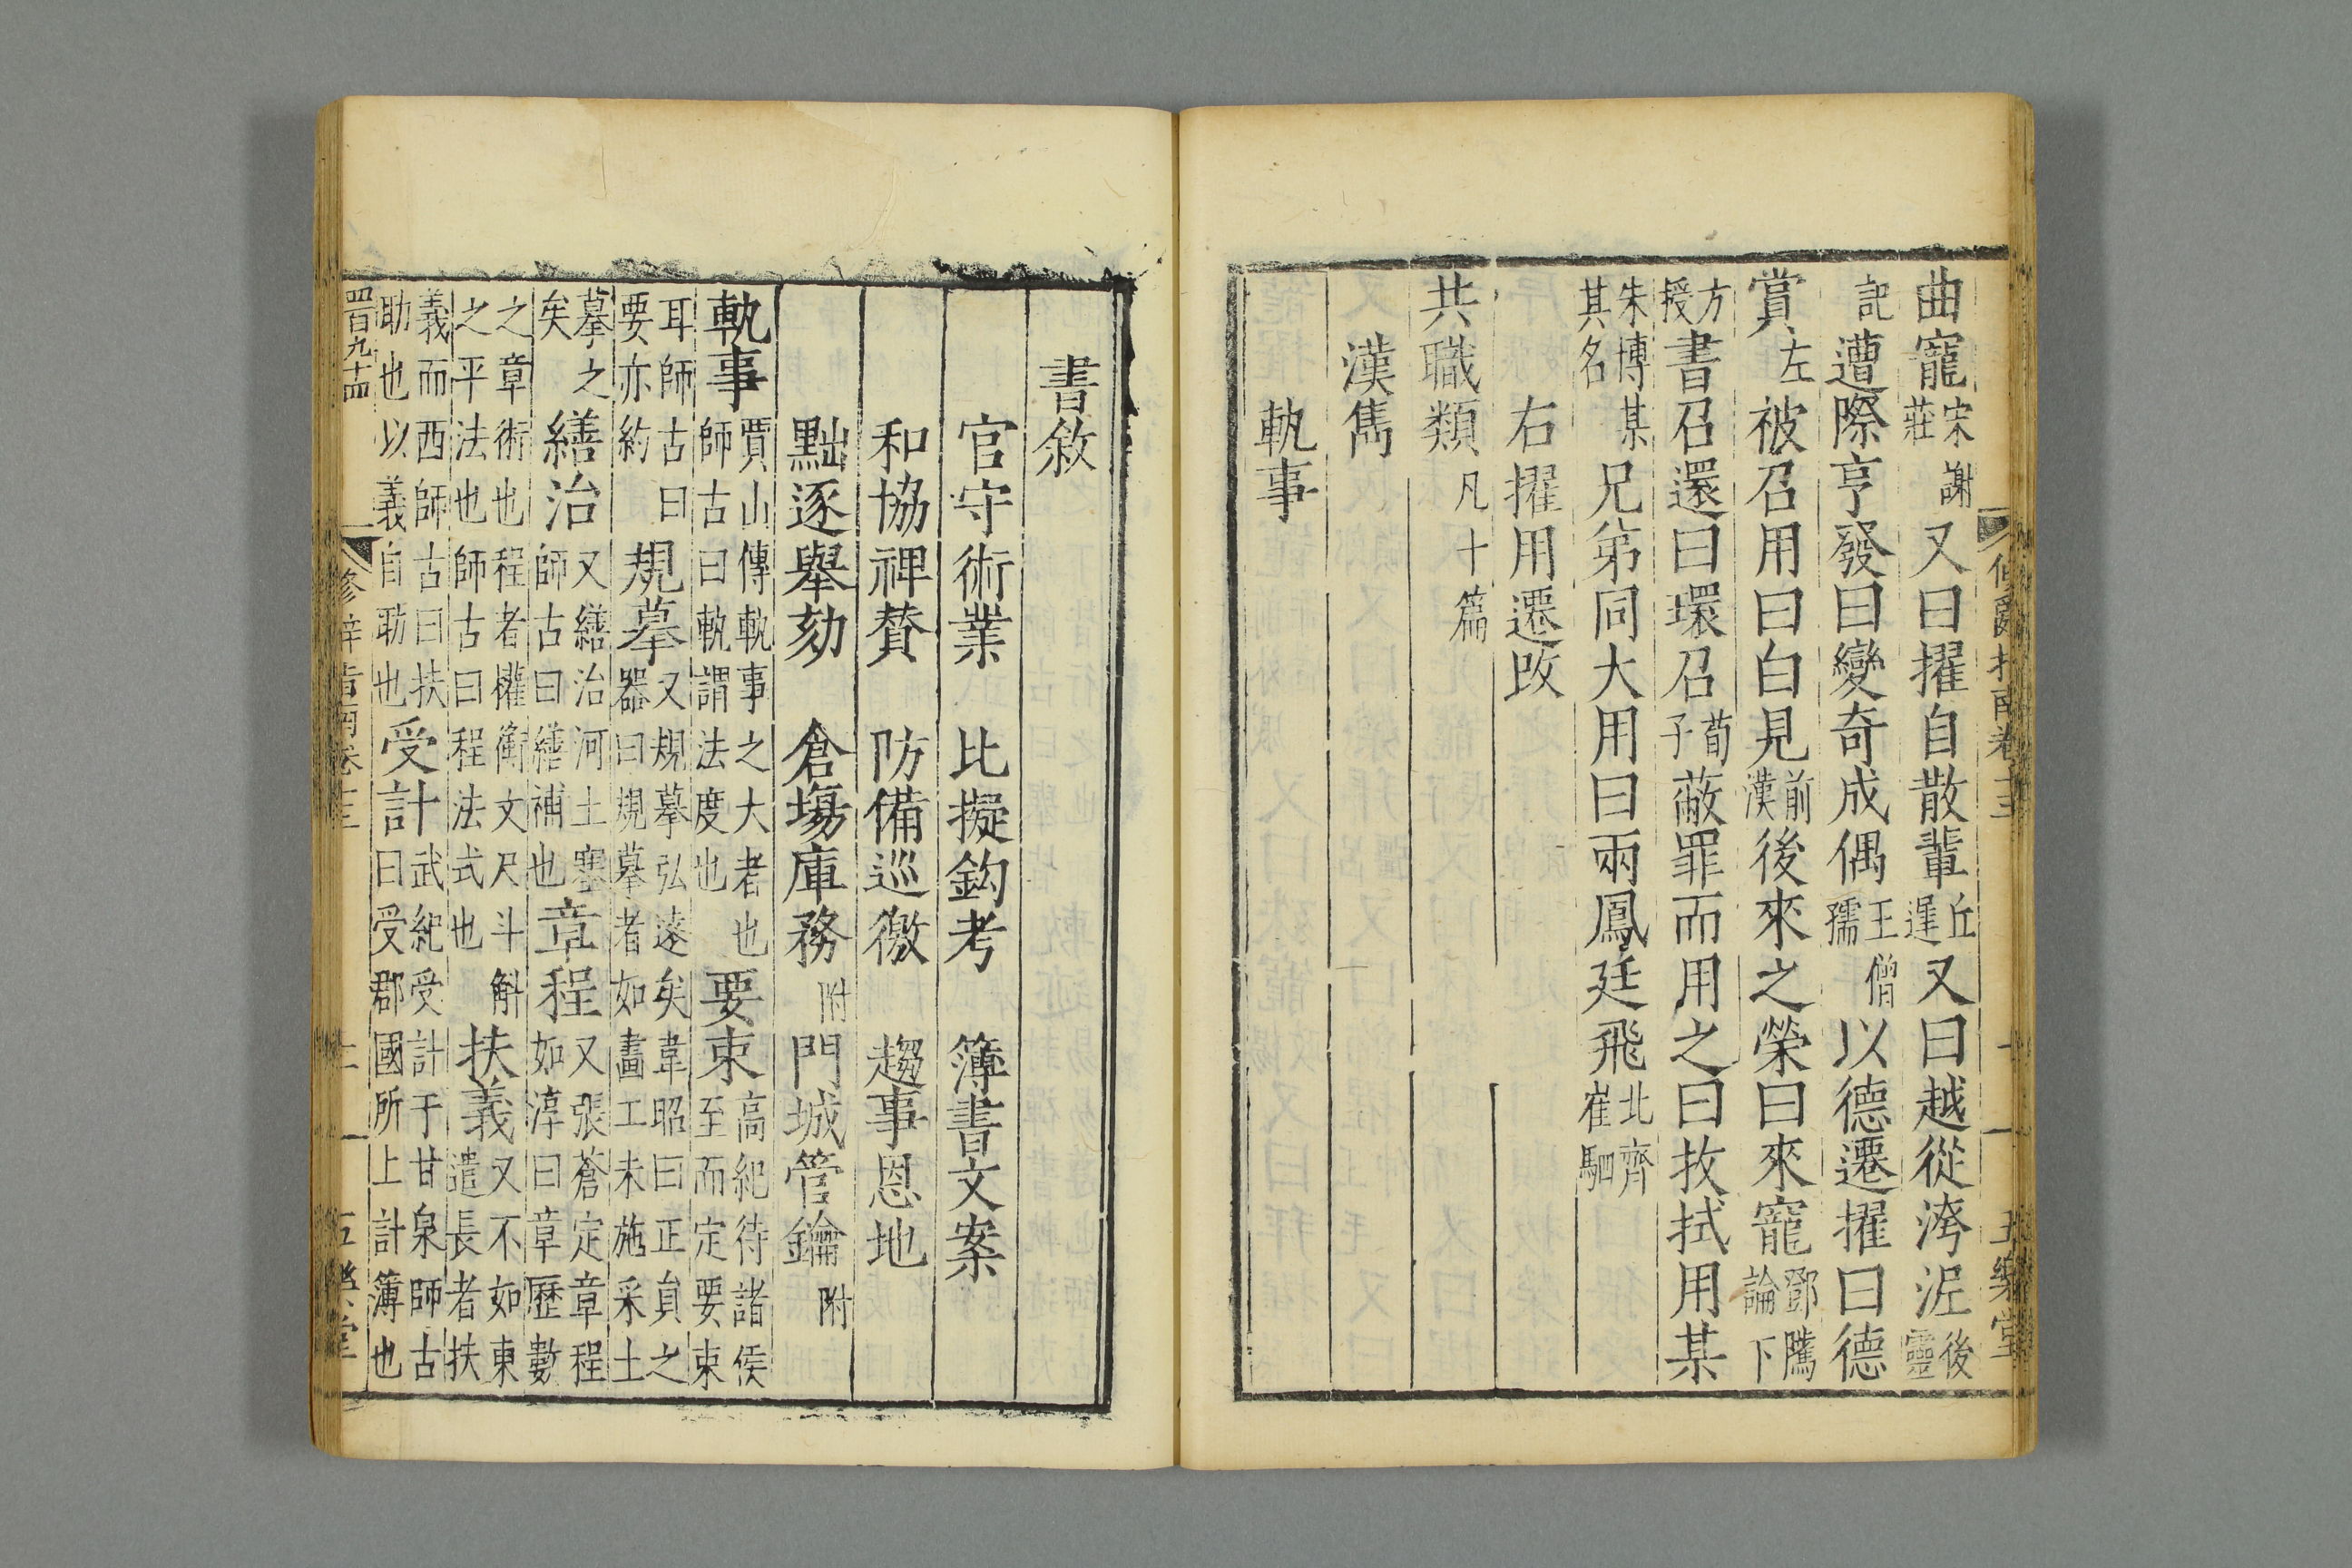 曲寵宋謝莊又曰擢自散輩丘遲又曰越從洿泥後靈
記遭際亨發曰變奇成偶王僧孺以德遷擢曰德
賞左被召用曰白見前漢後來之榮曰來寵鄧騭論下
方授書召還曰環召荀子蔽罪而用之曰抆拭用某
朱博某其名兄弟同大用曰兩鳳廷飛北齊崔㥄
右擢用遷改
共職類凡十篇
漢雋
執事
書敘
官守術業 比擬鈎考 簿書文案
和協裨贊 防備巡徼 趨事恩地
黜逐舉劾 倉塲庫務附門城管鑰附
執事賈山傳執事之大者也師古曰執謂法度也要束高紀待諸侯至而定要束
耳師古曰要亦約規摹又規摹弘遠矣韋昭曰正員之器曰規摹者如畫工未施采土
摹之矣繕治又繕治河土塞師古曰繕補也章程又張蒼定章程如淳曰章歷數
之章術也程者權衡文尺斗斛之平法也師古曰程法式也扶義又不如東遣長者扶
義而西師古曰扶助也以義自助也受計武紀受計于甘泉師古曰受郡國所上計簿也
四百九十四 修辭指南卷十三 十一 五樂堂